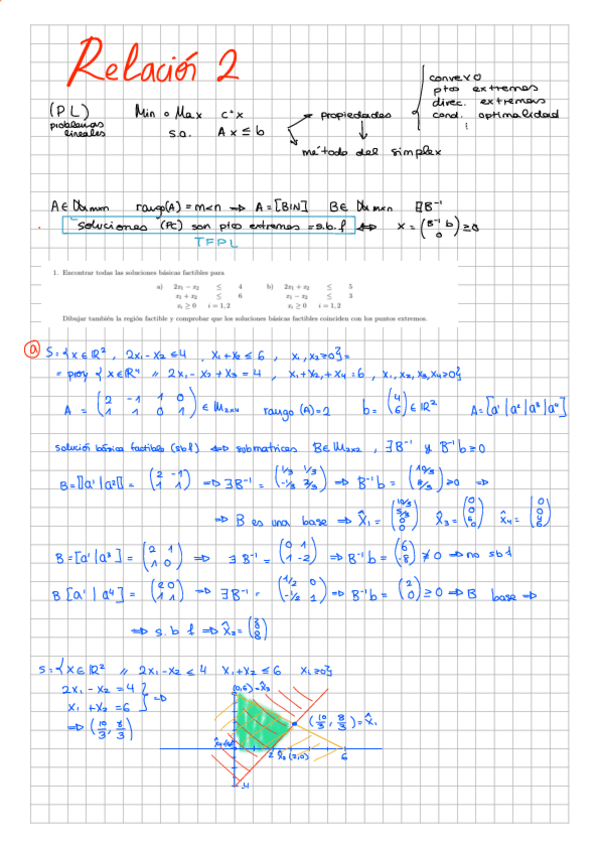 Relación 2
(PL) Min o Max cᵗx propiedades convexo
problemas s.a. Ax ≤ b ptos extremos
lineales direc. extremas
cond. optimalidad
⋮
método del simplex
rango(A) = m<n ⇒ A = [B|N] ∃B⁻¹
soluciones (PL) son ptos extremos = s.b.f ⇔ x = (B⁻¹b 0) ≥ 0
TFPL
1. Encontrar todas las soluciones básicas factibles para
a) 2x₁ − x₂ ≤ 4 b) 2x₁ + x₂ ≤ 5
x₁ + x₂ ≤ 6 x₁ − x₂ ≤ 3
xᵢ ≥ 0 i = 1, 2 xᵢ ≥ 0 i = 1, 2
Dibujar también la región factible y comprobar que los soluciones básicas factibles coinciden con los puntos extremos.
a) S = {x ∈ ℝ², 2x₁ − x₂ ≤ 4, x₁ + x₂ ≤ 6, x₁, x₂ ≥ 0} =
= proy {x ∈ ℝ⁴ // 2x₁ − x₂ + x₃ = 4, x₁ + x₂, + x₄ = 6, x₁, x₂, x₃, x₄ ≥ 0}
A = (2 −1 1 0 / 1 1 0 1) ∈ M₂ₓ₄ rango (A) = 2 b = (4 / 6) ∈ ℝ² A = [a¹ | a² | a³ | a⁴]
solución básica factible (sbf) ⇔ submatrices B ∈ M₂ₓ₂, ∃B⁻¹ y B⁻¹b ≥ 0
B = [a¹ | a²] = (2 −1 / 1 1) ⇒ ∃B⁻¹ = (1/3 1/3 / −1/3 2/3) ⇒ B⁻¹b = (10/3 / 8/3) ≥ 0 ⇒
⇒ B es una base ⇒ x̂₁ = (10/3 / 8/3 / 0 / 0) x̂₃ = (0 / 6 / 0) x̂₄ =
B = [a¹ | a³] = (2 1 / 1 0) ⇒ ∃B⁻¹ = (0 1 / 1 −2) ⇒ B⁻¹b = (6 / −8) ≱ 0 ⇒ no sbf
B [a¹ | a⁴] = (2 0 / 1 1) ⇒ ∃B⁻¹ = (1/2 0 / −1/2 1) ⇒ B⁻¹b = (2 / 0) ≥ 0 ⇒ B base ⇒
⇒ s.b.f ⇒ x̂₂ =
S = {x ∈ ℝ² // 2x₁ − x₂ ≤ 4 x₁ + x₂ ≤ 6 xᵢ ≥ 0}
2x₁ − x₂ = 4 } ⇒
x₁ + x₂ = 6
⇒ (10/3, 8/3)
(0,6) = x̂₃
(10/3, 8/3) = x̂₁
2 x̂₂ (2,0) 6
-4